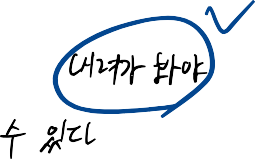 내려가 봐야
수 있다